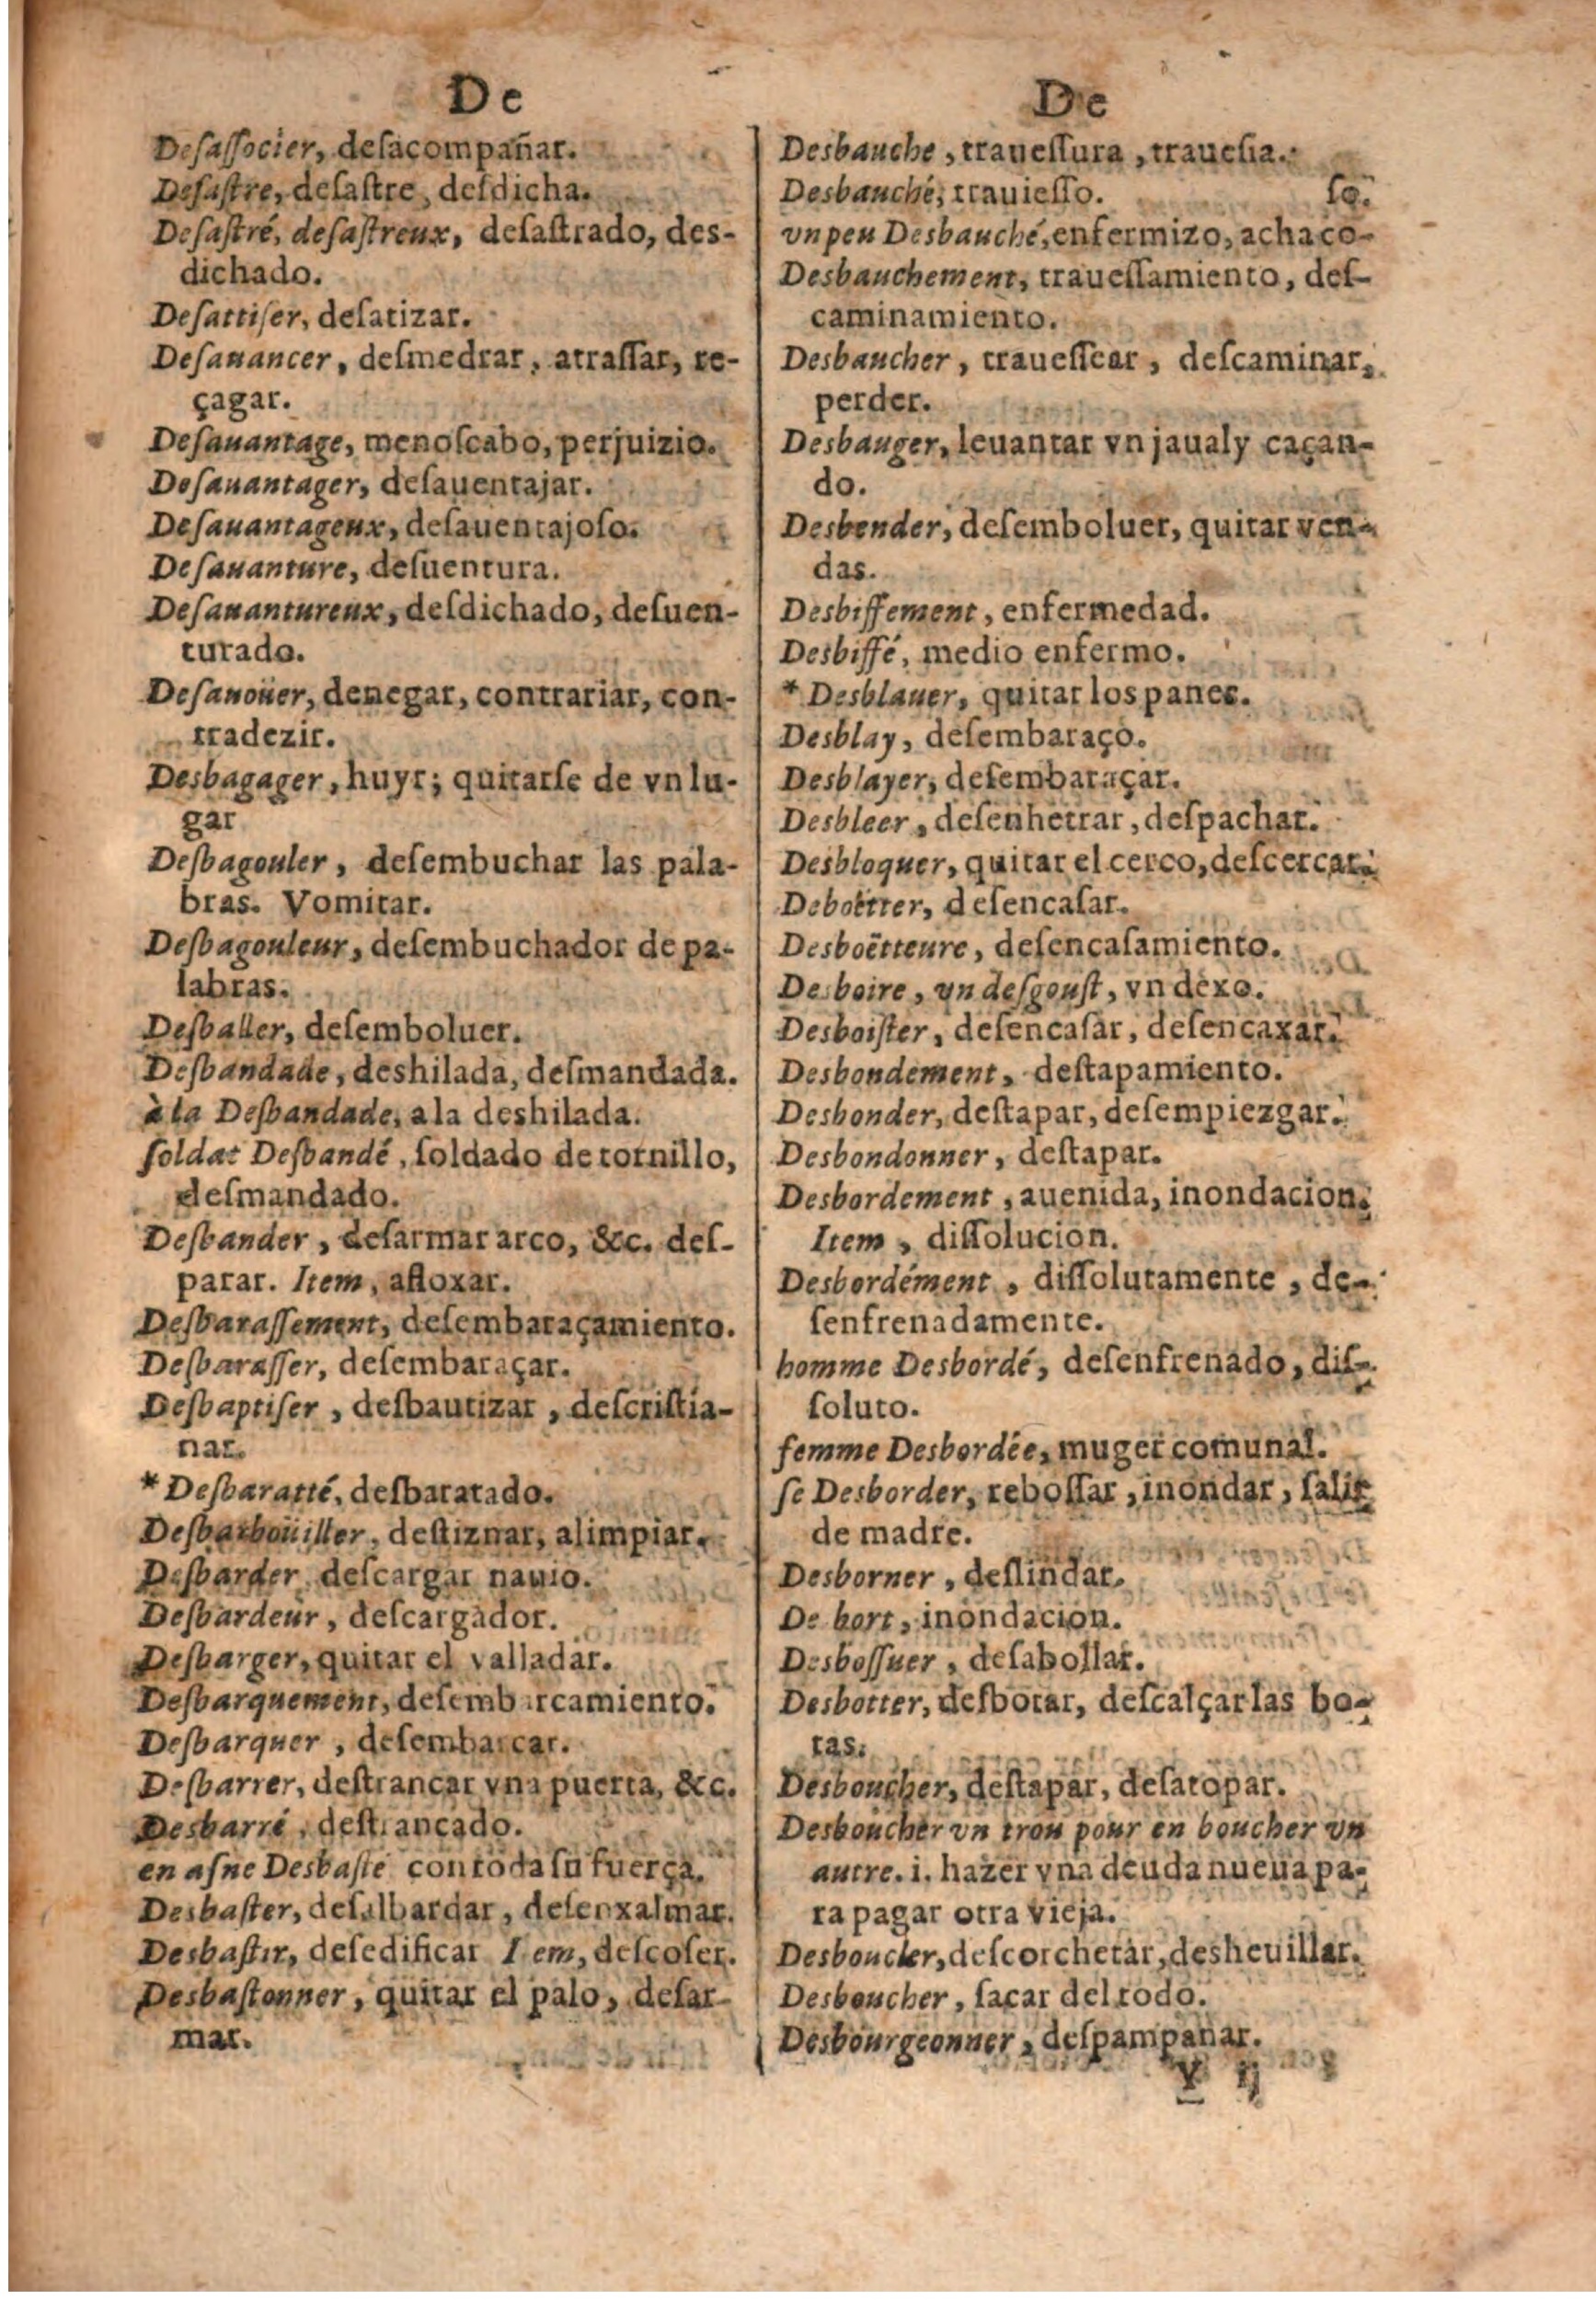 De
Deſaſſocier, deſacompañar.
Deſaſtre, deſaſtre, deſdicha.
Deſaſtré, deſaſtreux, deſaſtrado, des-
dichado.
Deſattiſer, deſatizar.
Deſauancer, deſmedrar, atraſſar, re-
çagar.
Deſauantage, menoſcabo, perjuizio.
Deſauantager, deſauentajar.
Deſauantageux, deſauentajoſo.
Deſauanture, deſuentura.
Deſauantureux, deſdichado, deſuen-
turado.
Deſauoüer, denegar, contrariar, con-
tradezir.
Desbagager, huyr; quitarſe de vn lu-
gar
Deſbagouler, deſembuchar las pala-
bras. Vomitar.
Deſbagouleur, deſembuchador de pa-
labras.
Deſballer, deſemboluer.
Deſbandade, deshilada, deſmandada.
à la Deſbandade, a la deshilada.
ſoldat Deſbandé, ſoldado de tornillo,
deſmandado.
Deſbander, deſarmar arco, &c. deſ-
parar. Item, afloxar.
Deſbaraſſement, deſembaraçamiento.
Deſbaraſſer, deſembaraçar.
Deſbaptiſer, deſbautizar, deſcriſtia-
nar.
* Deſbaratté, deſbaratado.
Deſbarboüiller, deſtiznar, alimpiar.
Deſbarder, deſcargar nauio.
Deſbardeur, deſcargador.
Deſbarger, quitar el valladar.
Deſbarquement, deſembarcamiento.
Deſbarquer, deſembarcar.
Deſbarrer, deſtrancar vna puerta, &c.
Desbarré, deſtrancado.
en aſne Desbaſté con toda ſu fuerça.
Desbaſter, deſalbardar, deſenxalmar.
Desbaſtir, deſedificar Item, deſcoſer.
Desbaſtonner, quitar el palo, deſar-
mar.
De
Desbauche, traueſſura, traueſia.
Desbauché, trauieſſo. ſo.
vn peu Desbauché, enfermizo, achaco-
Desbauchement, traueſſamiento, deſ-
caminamiento.
Desbaucher, traueſſear, deſcaminar,
perder.
Desbauger, leuantar vn jaualy caçan-
do.
Desbender, deſemboluer, quitar ven-
das.
Desbiffement, enfermedad.
Desbiffé, medio enfermo.
* Desblauer, quitar los panes.
Desblay, deſembaraço.
Desblayer, deſembaraçar.
Desbleer, deſenhetrar, deſpachar.
Desbloquer, quitar el cerco, deſcercar.
Deboëtter, deſencaſar.
Desboëtteure, deſencaſamiento.
Desboire, vn deſgouſt, vn dexo.
Desboiſter, deſencaſar, deſencaxar.
Desbondement, deſtapamiento.
Desbonder, deſtapar, deſempiezgar.
Desbondonner, deſtapar.
Desbordement, auenida, inondacion.
Item, diſſolucion.
Desbordément, diſſolutamente, de-
ſenfrenadamente.
homme Desbordé, deſenfrenado, diſ-
ſoluto.
femme Desbordée, muger comunal.
ſe Desborder, reboſſar, inondar, ſalir
de madre.
Desborner, deſlindar.
De bort, inondacion.
Desboſſuer, deſabollar.
Desbotter, deſbotar, deſcalçar las bo-
tas.
Desboucher, deſtapar, deſatopar.
Desboucher vn trou pour en boucher vn
autre. i. hazer vna deuda nueua pa-
ra pagar otra vieja.
Desboucler, deſcorchetar, desheuillar.
Desboucher, ſacar del todo.
Desbourgeonner, deſpampanar.
Y ij